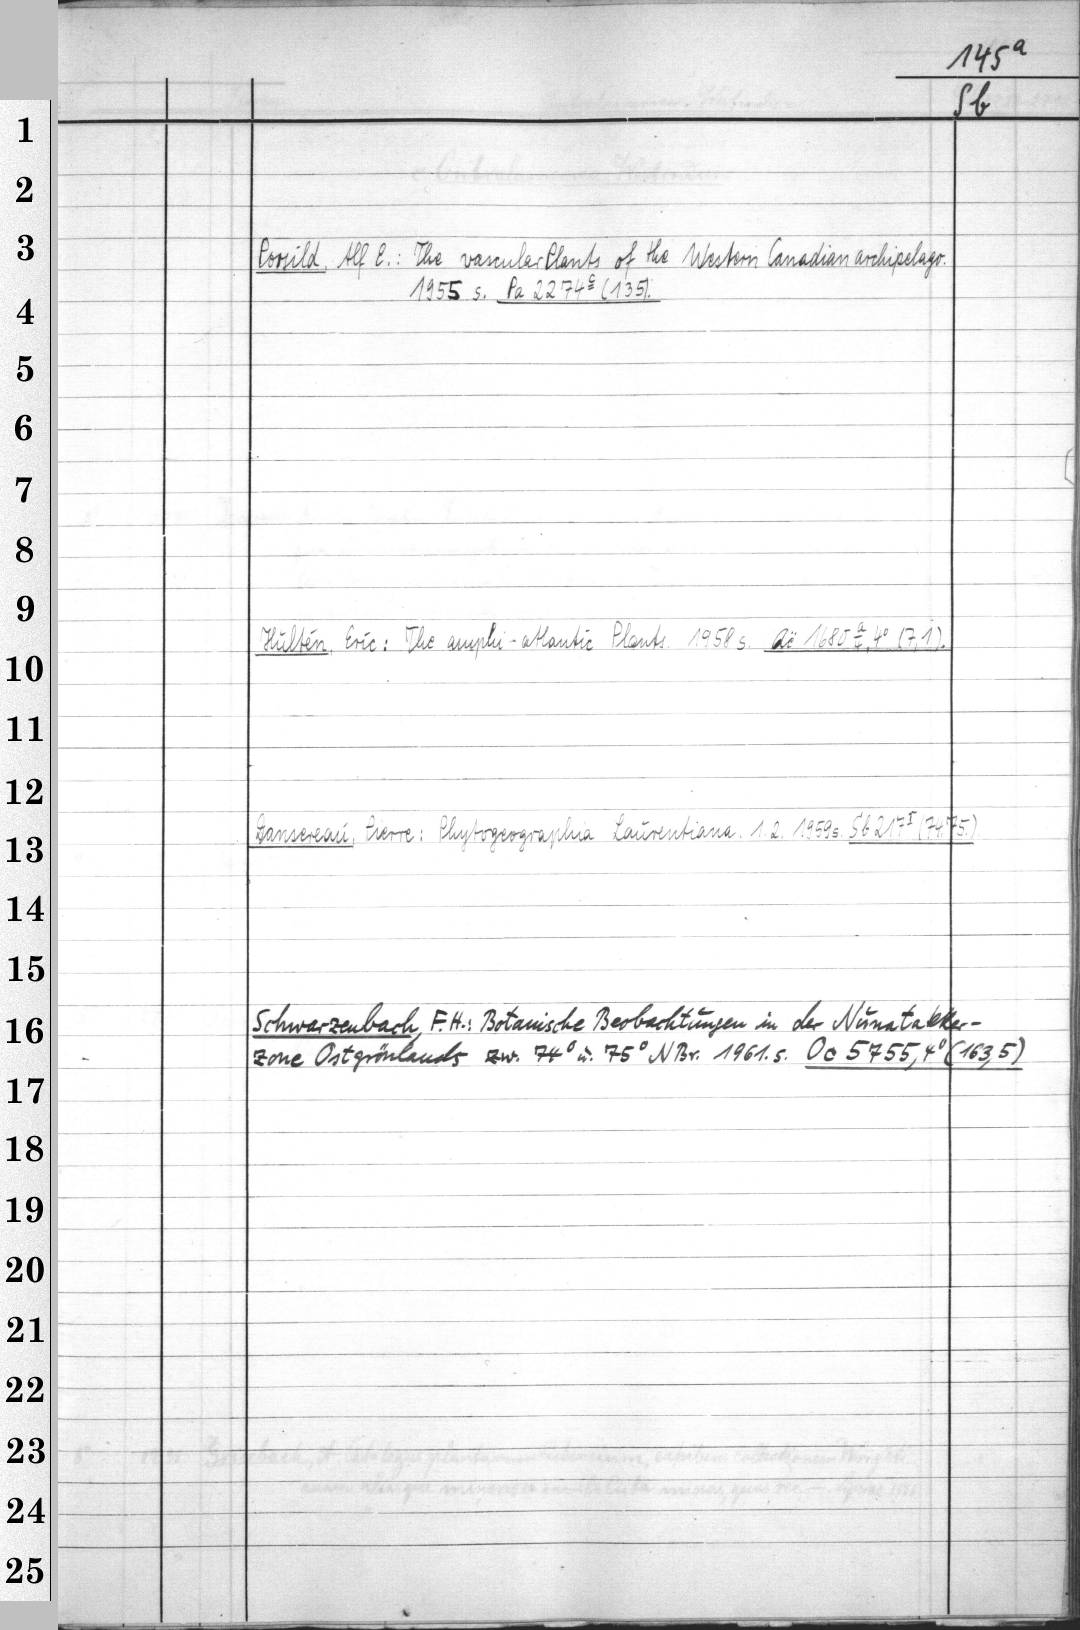 145a
Sb
1
2
3
Porsild, Alf E.: The vascular Plants of the Western Canadian archipelago.
1955 s. Pa 2274c (135).
4
5
6
7
8
9
Hultén, Eric: The amphi-atlantic Plants. 1958 s. Aë 1680 a/c, 4° (7,1).
10
11
12
Dansereau, Pierre: Phytogeographia Laurentiana. 1.2. 1959 s. Sb 217I (74.75.)
13
14
15
Schwarzenbach, F.H.: Botanische Beobachtungen in der Nunatakker-
16
zone Ostgrönlands zw. 74° u. 75° NBr. 1961. s. Oc 5755, 4° (163,5)
17
18
19
20
21
22
23
24
25